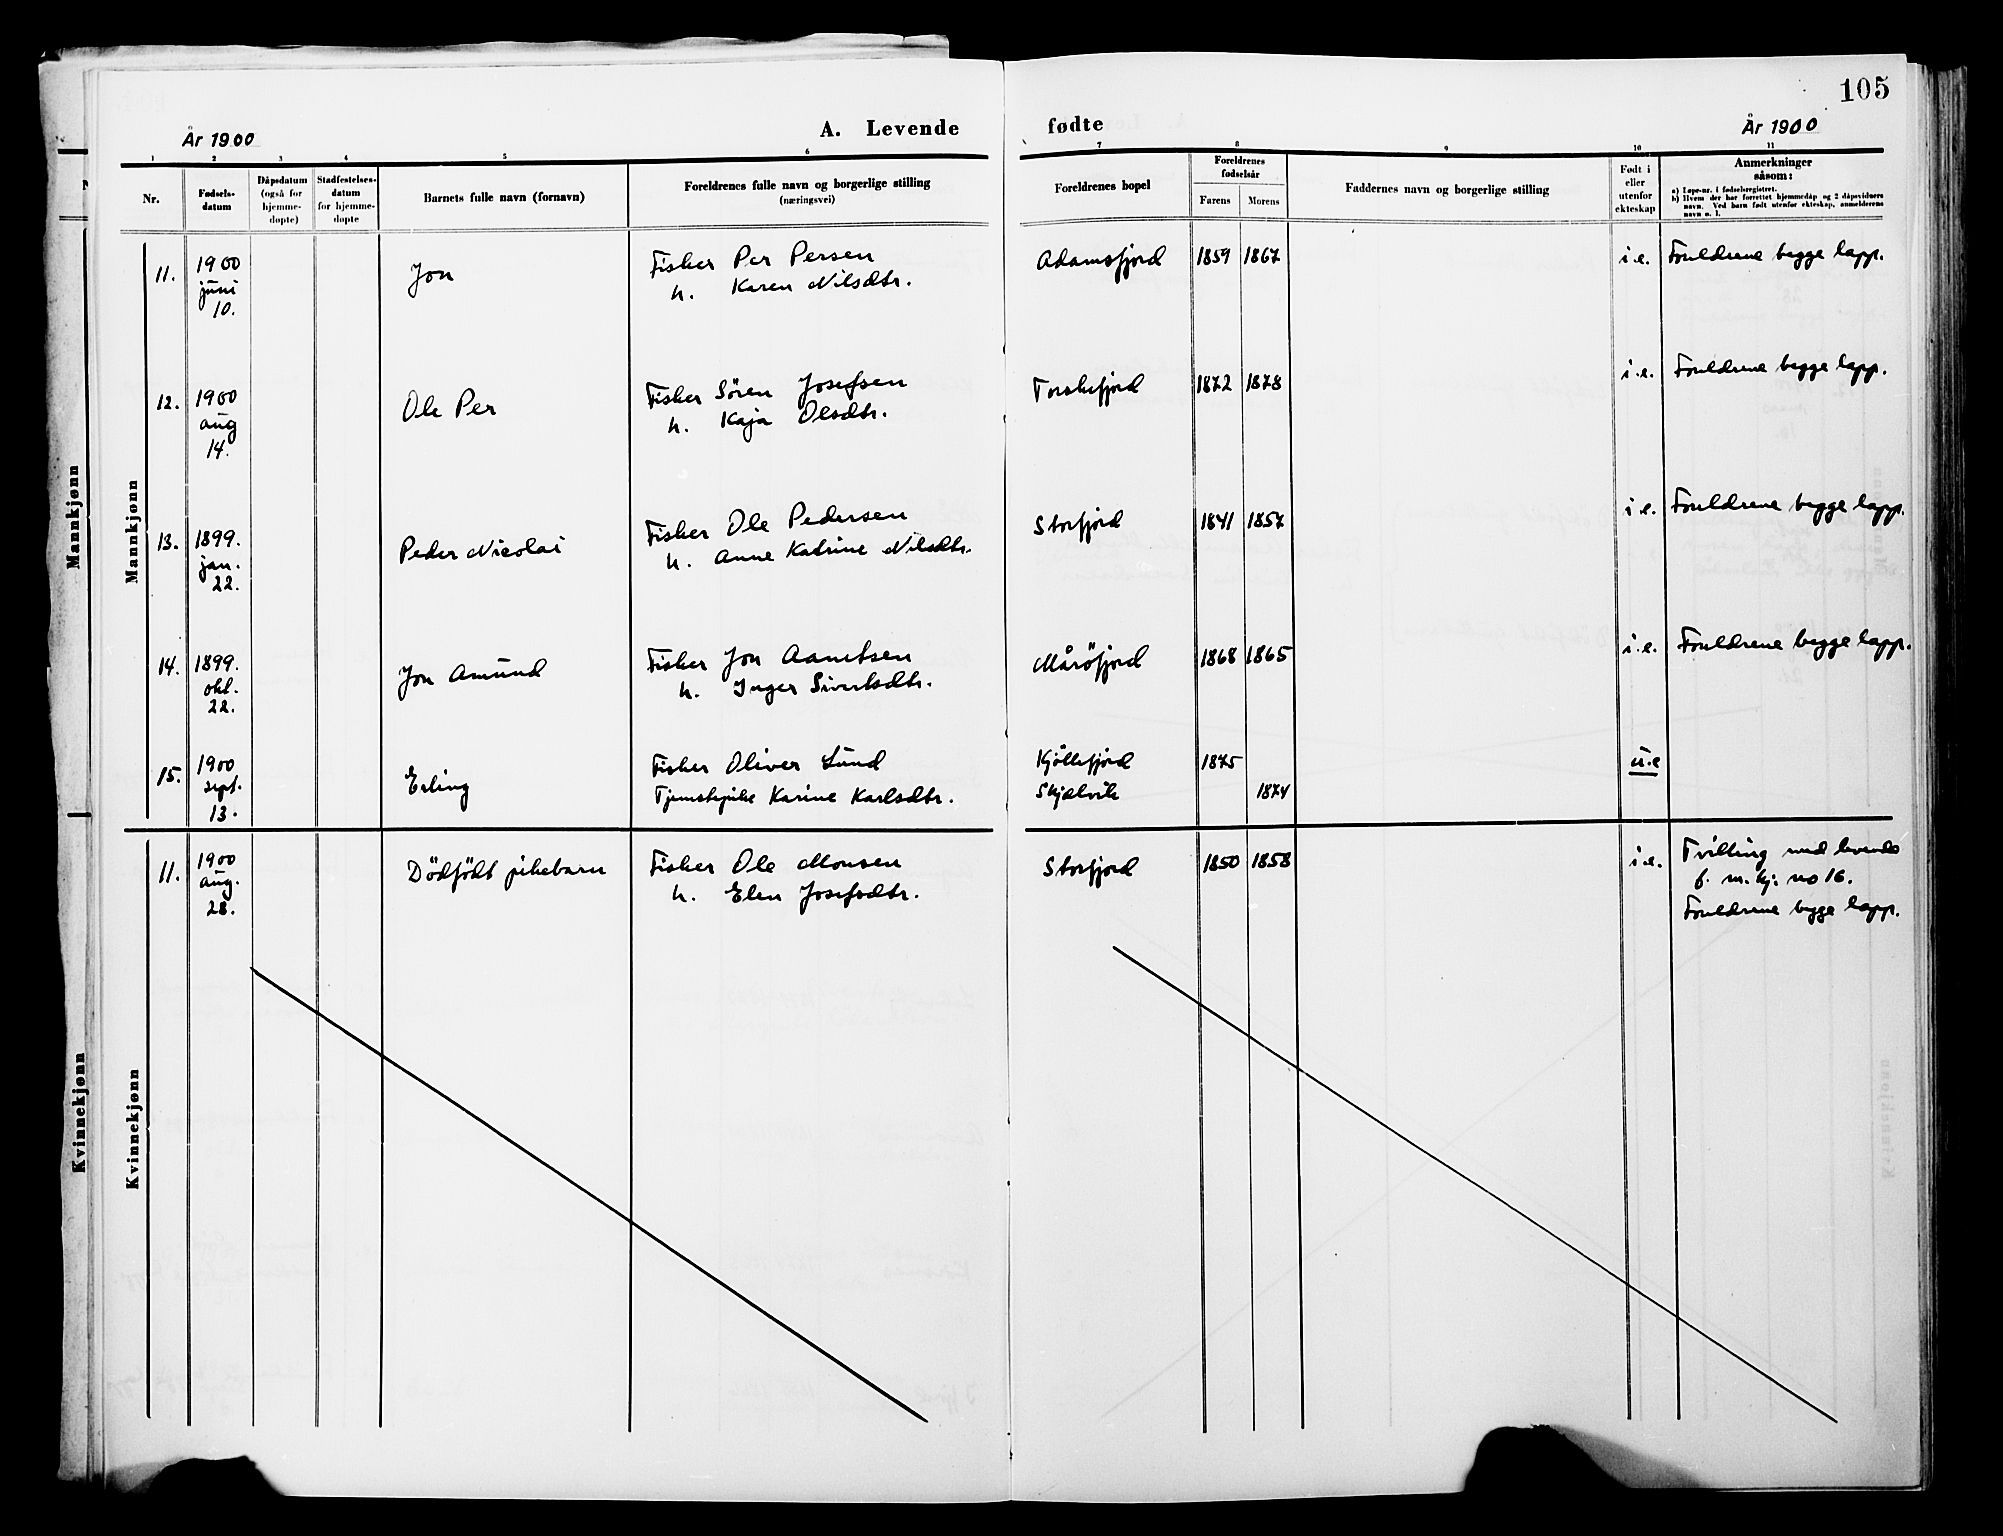 105
År 1900
A. Levende
fødte
År 1900
1 2 3 4 5 6 7 8 9 10 11
Nr.
Fødsels-
datum
Dåpsdatum
(også for
hjemme-
døpte)
Stadfestelses-
datum
for hjemme-
døpte
Barnets fulle navn (fornavn)
Foreldrenes fulle navn og borgerlige stilling
(næringsvei)
Foreldrenes bopel
Foreldrenes
fødselsår
Farens
Morens
Faddernes navn og borgerlige stilling
Født i
eller
utenfor
ekteskap
Anmerkninger
såsom:
a) Løpe-nr. i fødselsregistret.
b) Hvem der har forrettet hjemmedåp og 2 dåpsvidners
navn. Ved barn født utenfor ekteskap, anmelderens
navn o. l.
Mannkjønn
Mannkjønn
11.
1900
juni
10.
Jon
Fisker Per Persen
h. Karen Nilsdtr.
Adamsfjord
1859 1867
i.e.
Foreldrene begge lapp.
12.
1900
aug
14.
Ole Per
Fisker Sören Josefsen
h. Kaja Olsdtr.
Torskefjord
1872 1878
i.e.
Foreldrene begge lapp.
13.
1899.
jan.
22.
Peder Nicolai
Fisker Ole Pedersen
h. Anne Katrine Nilsdtr.
Storfjord
1841 1857
i.e.
Foreldrene begge lapp.
14.
1899.
okt.
22.
Jon Amund
Fisker Jon Aamtsen
h. Inger Sivertsdtr.
Måröfjord
1868 1865
i.e.
Foreldrene begge lapp.
15.
1900
sept.
13.
Erling
Fisker Oliver Lund
Tjenstepike Karine Karlsdtr.
Kjöllefjord
Skjælvik
1875
1874
u.e
Kvinnekjønn
Kvinnekjønn
11.
1900
aug.
28.
Dödfödt pikebarn
Fisker Ole Monsen
h. Elen Josefsdtr.
Storfjord
1850 1858
i.e.
Tvilling med levende
f. m.kj. no 16.
Foreldrene begge lapp.